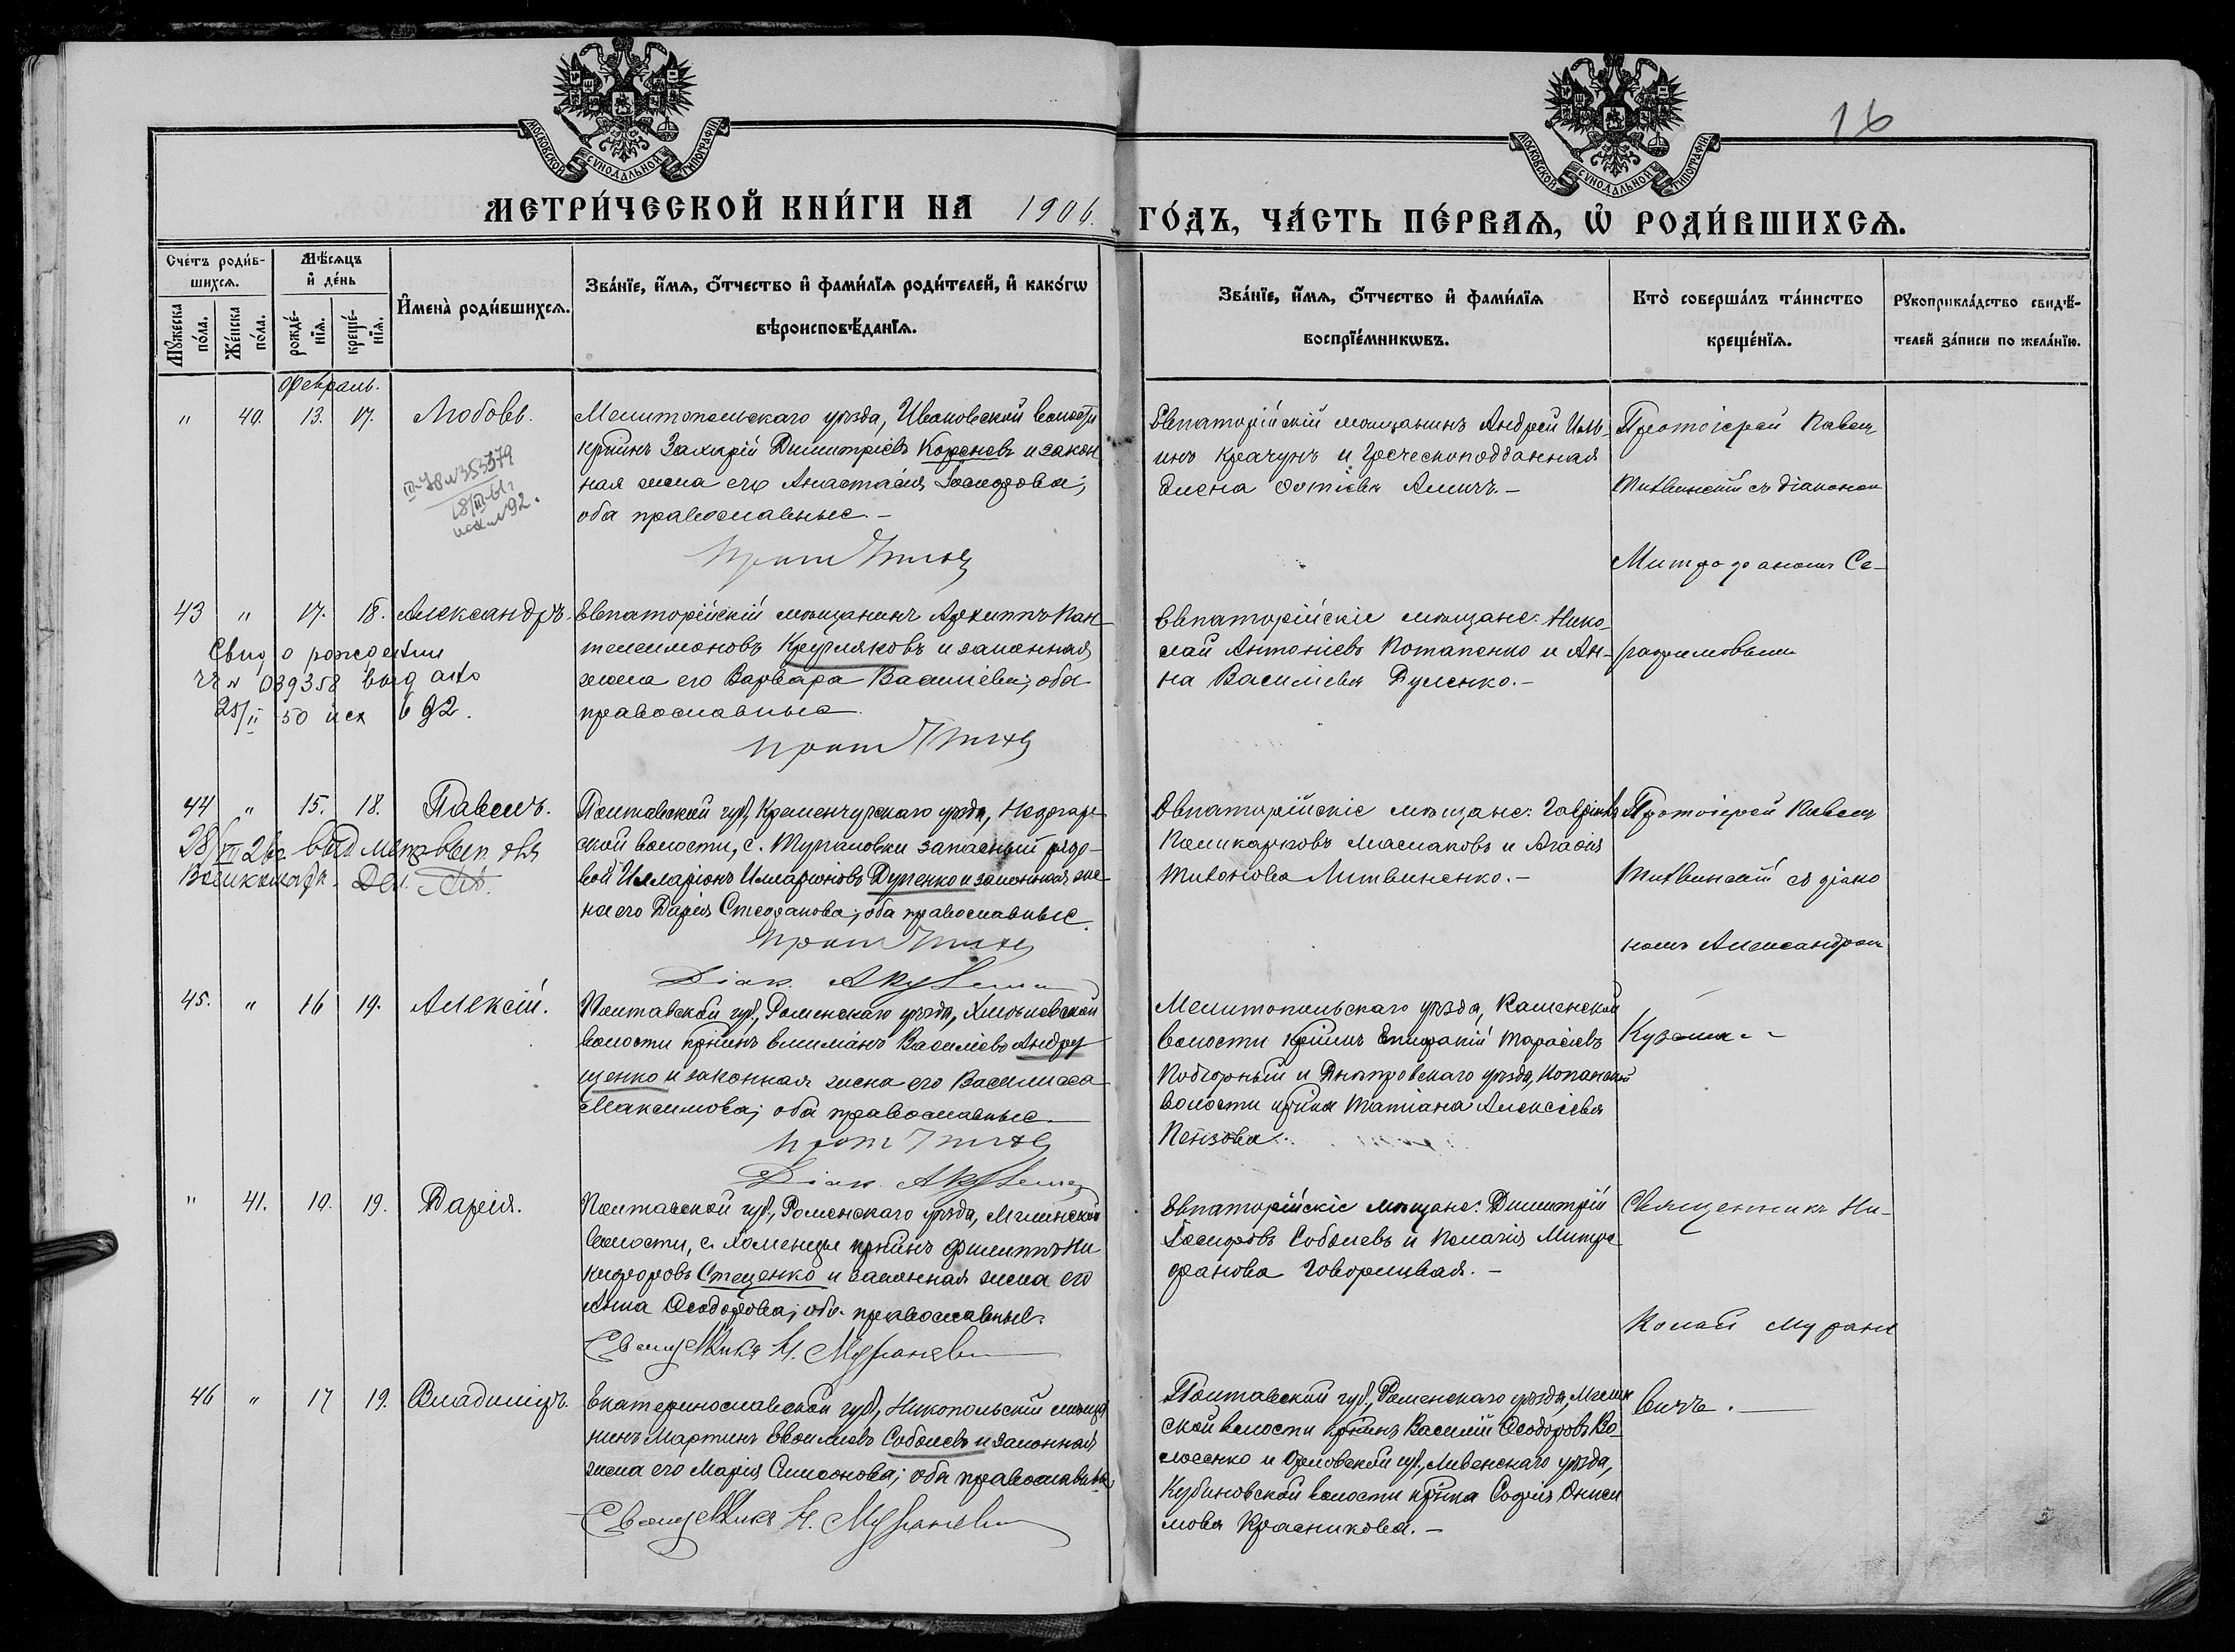 МОСКОВСКОЙ СѴНОДАЛЬНОЙ ТИПОГРАФІИ
МОСКОВСКОЙ СѴНОДАЛЬНОЙ ТИПОГРАФІИ
16
МЕТРИ́ЧЕСКОЙ КНИ́ГИ НА 1906.
ГО́ДЪ, ЧА́СТЬ ПЕ́РВАѦ, Ѡ҆ РОДИ́ВШИХСѦ.
Сче́тъ роди́в-
шихсѧ.
Мꙋ́жеска
по́ла.
Же́нска
по́ла.
Мѣ́сѧцъ
и҆ де́нь
рожде́-
нїѧ.
креще́-
нїѧ.
И҆мена̀ роди́вшихсѧ.
Зва́нїе, и҆́мѧ, ѻ҆́тчество и҆ фами́лїѧ роди́телей, и҆ како́гѡ
вѣроисповѣ́данїѧ.
Зва́нїе, и҆́мѧ, ѻ҆́тчество и҆ фами́лїѧ
воспрїе́мникѡвъ.
Кто̀ соверша́лъ та́инство
креще́нїѧ.
Рꙋкоприкла́дство свидѣ́-
телей за́писи по жела́нїю.
Февраль.
" 40. 13. 17. Любовь.
Мелитопольскаго уѣзда, Ивановской волости
кр̃нинъ Захарій Димитріевъ Кореневъ и закон
ная жена его Анастасія Іосифова;
оба православные.–
Прот
Евпаторійскій мѣщанинъ Андрей Иль-
инъ Крачунъ и Греческоподданная
Елена
Протоіерей Павелъ
съ діакономъ
Митрофаномъ Се-
№ 353379
18/III-61г
исх №92.
43 " 17. 18. Александръ.
Евпаторійскій мѣщанинъ Архиппъ Пан-
телеимоновъ Кругляковъ и законная
жена его Варвара Васильева; оба
православные.
Прот
Евпаторійскіе мѣщане: Нико-
лай Антоніевъ Потапенко и Ан-
на Васильева Дуленко.–
рафимовымъ
Свид о рождении
№ 039358 выд
25/II 50 исх 92.
44 " 15. 18. Павелъ.
Полтавской губ, Кременчугскаго уѣзда,
ской волости, с. запасный рядо-
вой Илларіонъ Илларіоновъ Дученко и законная же
на его Дарія Стефанова; оба православные.
Прот
Діак.
Евпаторійскіе мѣщане: Гавріилъ
Поликарповъ Маслаковъ и Агаѳія
Тихонова Литвиненко.–
Протоіерей Павелъ
съ діако
номъ Александромъ
выд
45. " 16 19. Алексій.
Полтавской губ., Роменскаго уѣзда,
волости кр̃нинъ Васильевъ Андру
щенко и законная жена его Василисса
Максимова; оба православные.
Прот
Діак.
Мелитопольскаго уѣзда, Каменской
волости кр̃нинъ Епифаній Тарасіевъ
Подгорный и Днѣпровскаго уѣзда, Копанской
волости кр̃нка Татіана Алексіева
Пензова.
" 41. 10. 19. Дарія.
Полтавской губ., Роменскаго уѣзда,
волости, с. кр̃нинъ Филиппъ Ни
кифоровъ Стеценко и законная жена его
Анна Ѳеодорова; оба православные.
Священникъ Н. Мураневич
Евпаторійскіе мѣщане: Димитрій
Іосифовъ Соболевъ и Пелагія Митро
фанова Говорицкая.–
Священникъ Ни-
колай Муране
вичъ.
46 " 17 19. Владиміръ.
Екатеринославской губ, Никопольскій мѣща
нинъ Мартинъ Соболевъ и законная
жена его Марія Симеонова; оба православные
Священникъ Н. Мураневич
Полтавской губ., Роменскаго уѣзда,
ской волости кр̃нинъ Василій Ѳеодоровъ Во
лосенко и Орловской губ., Ливенскаго уѣзда,
волости кр̃нка Софія Ониси
мова Красникова.–